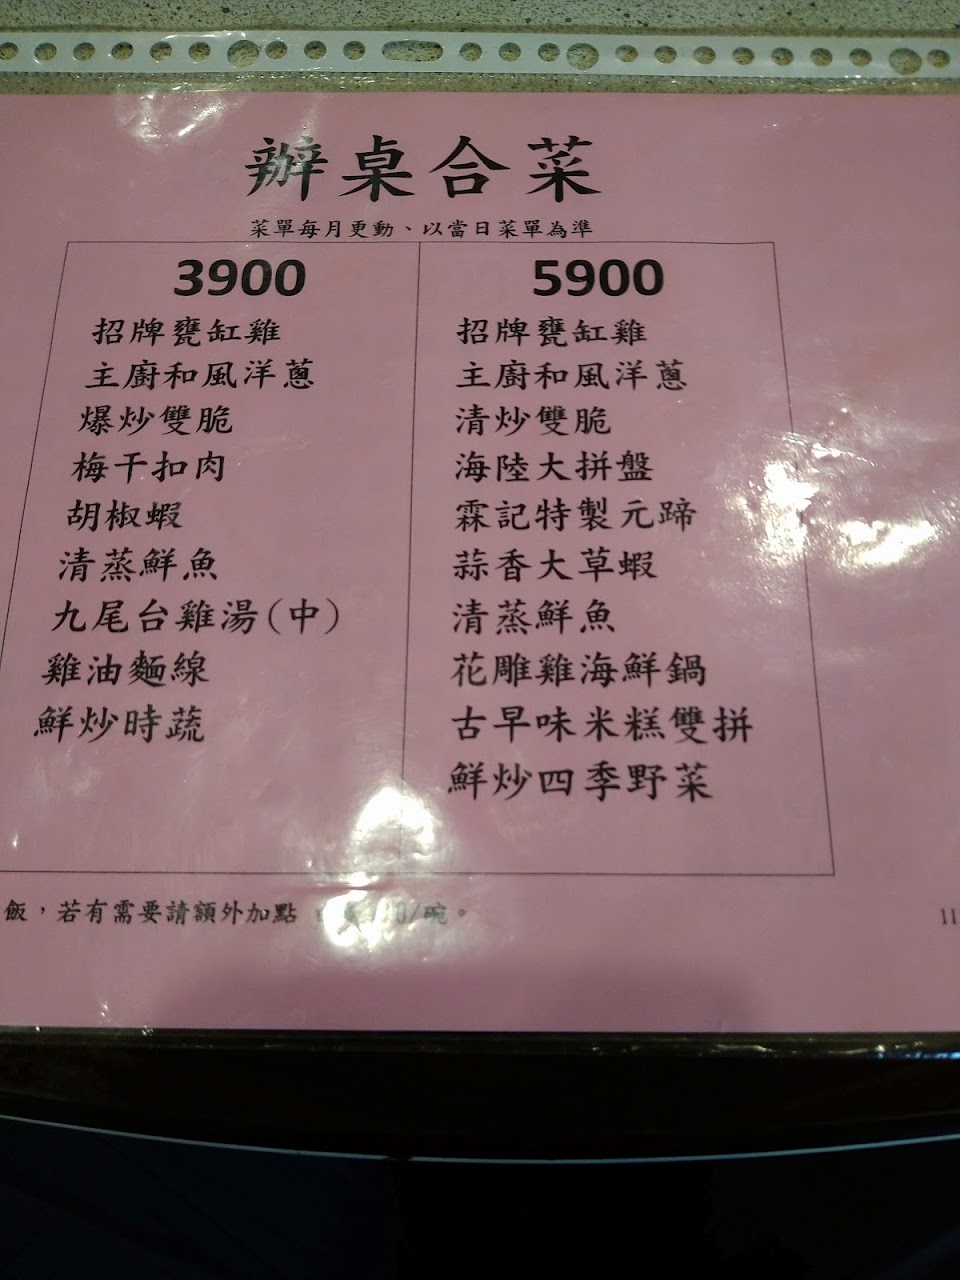 辦桌合菜
菜單每月更動、以當日菜單為準
3900
招牌甕缸雞
主廚和風洋蔥
爆炒雙脆
梅干扣肉
胡椒蝦
清蒸鮮魚
九尾台雞湯(中)
雞油麵線
鮮炒時蔬
5900
招牌甕缸雞
主廚和風洋蔥
清炒雙脆
海陸大拼盤
霖記特製元蹄
蒜香大草蝦
清蒸鮮魚
花雕雞海鮮鍋
古早味米糕雙拼
鮮炒四季野菜
飯，若有需要請額外加點 0/碗。
11